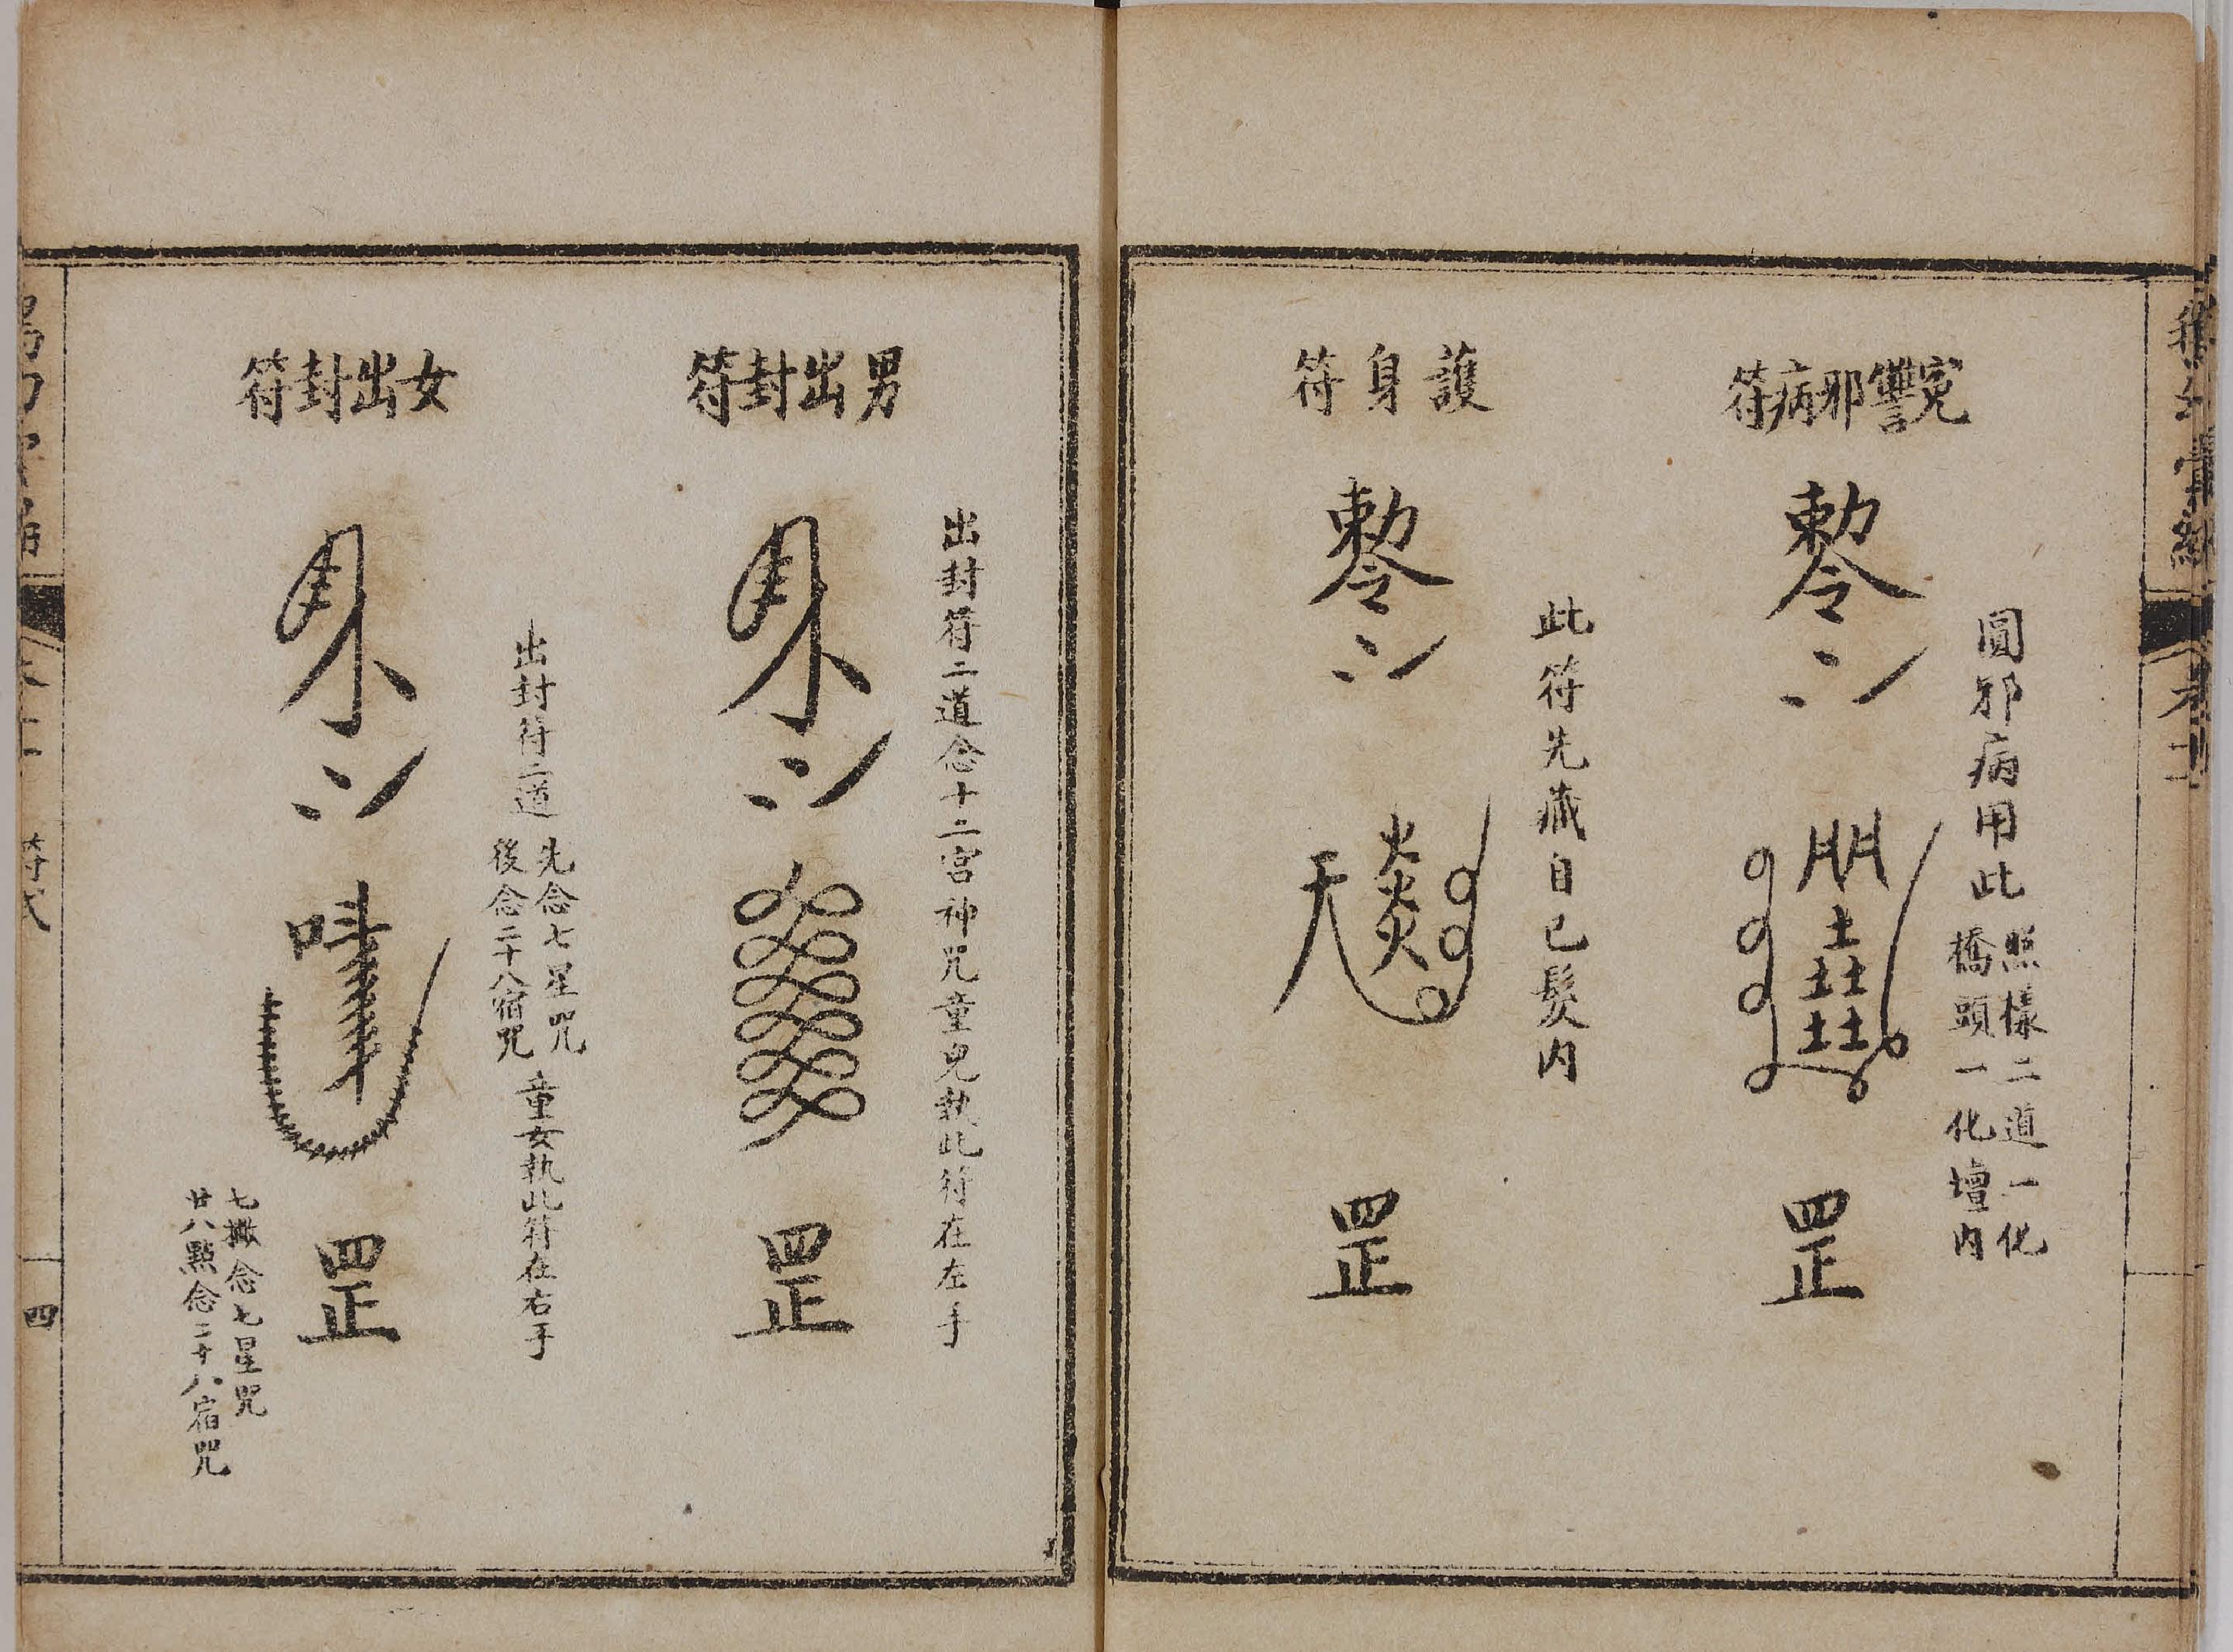 冤讐邪病符
圓邪病用此
照樣二道一化
橋頭一化壇內
勅令
罡
護身符
此符先藏自己髮內
勅令
罡
男出封符
出封符二道念十二宮神咒童兒執此符在左手
罡
女出封符
出封符二道
先念七星咒
後念二十八宿咒
童女執此符在右手
罡
七撇念七星咒
廿八點念二十八宿咒
符式
四